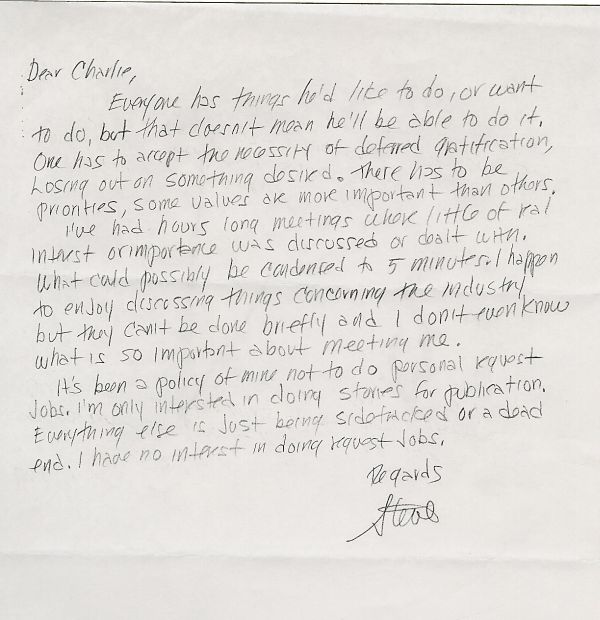 Dear Charlie,
Everyone has things he'd like to do, or want
to do, but that doesn't mean he'll be able to do it.
One has to accept the necessity of deferred gratification,
Losing out on something desired. There has to be
priorities, some values are more important than others.
I've had hours long meetings where little of real
interest or importance was discussed or dealt with.
What could possibly be condensed to 5 minutes. I happen
to enjoy discussing things concerning the industry
but they can't be done briefly and I don't even know
what is so important about meeting me.
It's been a policy of mine not to do personal request
Jobs. I'm only interested in doing stories for publication.
Everything else is just being sidetracked or a dead
end. I have no interest in doing request Jobs.
Regards
Steve